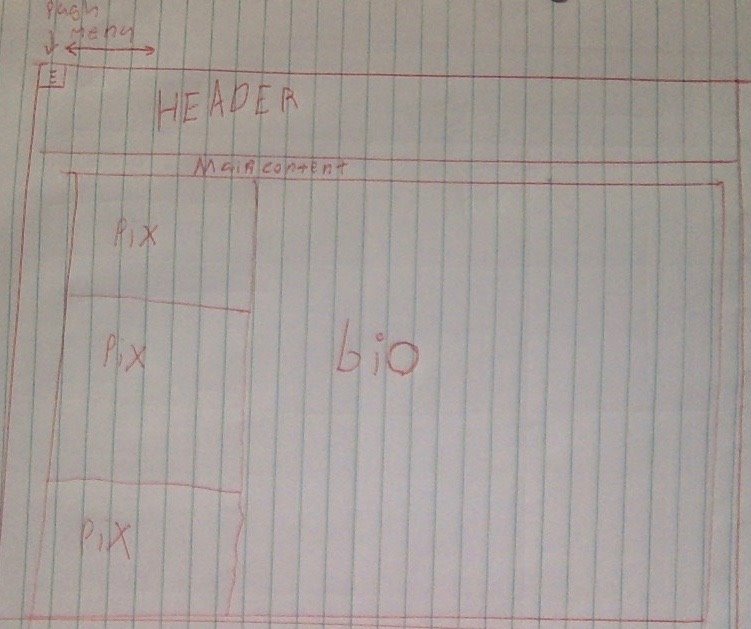 Push
menu
E
HEADER
Main content
Pix
Pix
bio
Pix